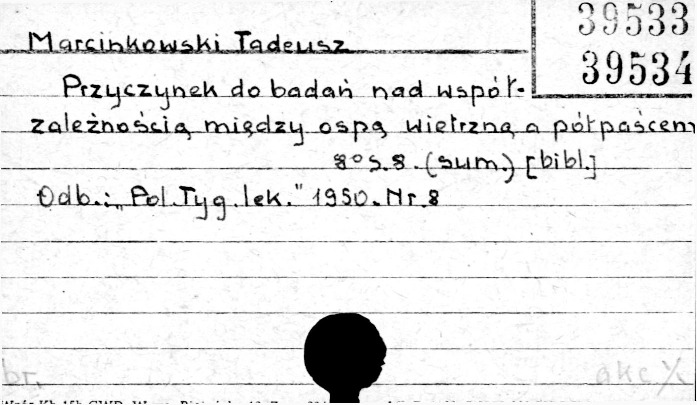 39533
39534
Marcinkowski Tadeusz
Przyczynek do badań nad współ-
zależnością między ospą wietrzną a półpaścem
8° s.8. (sum.) [bibl.]
Odb.: „Pol.Tyg.lek." 1950. Nr.8
br.
akc